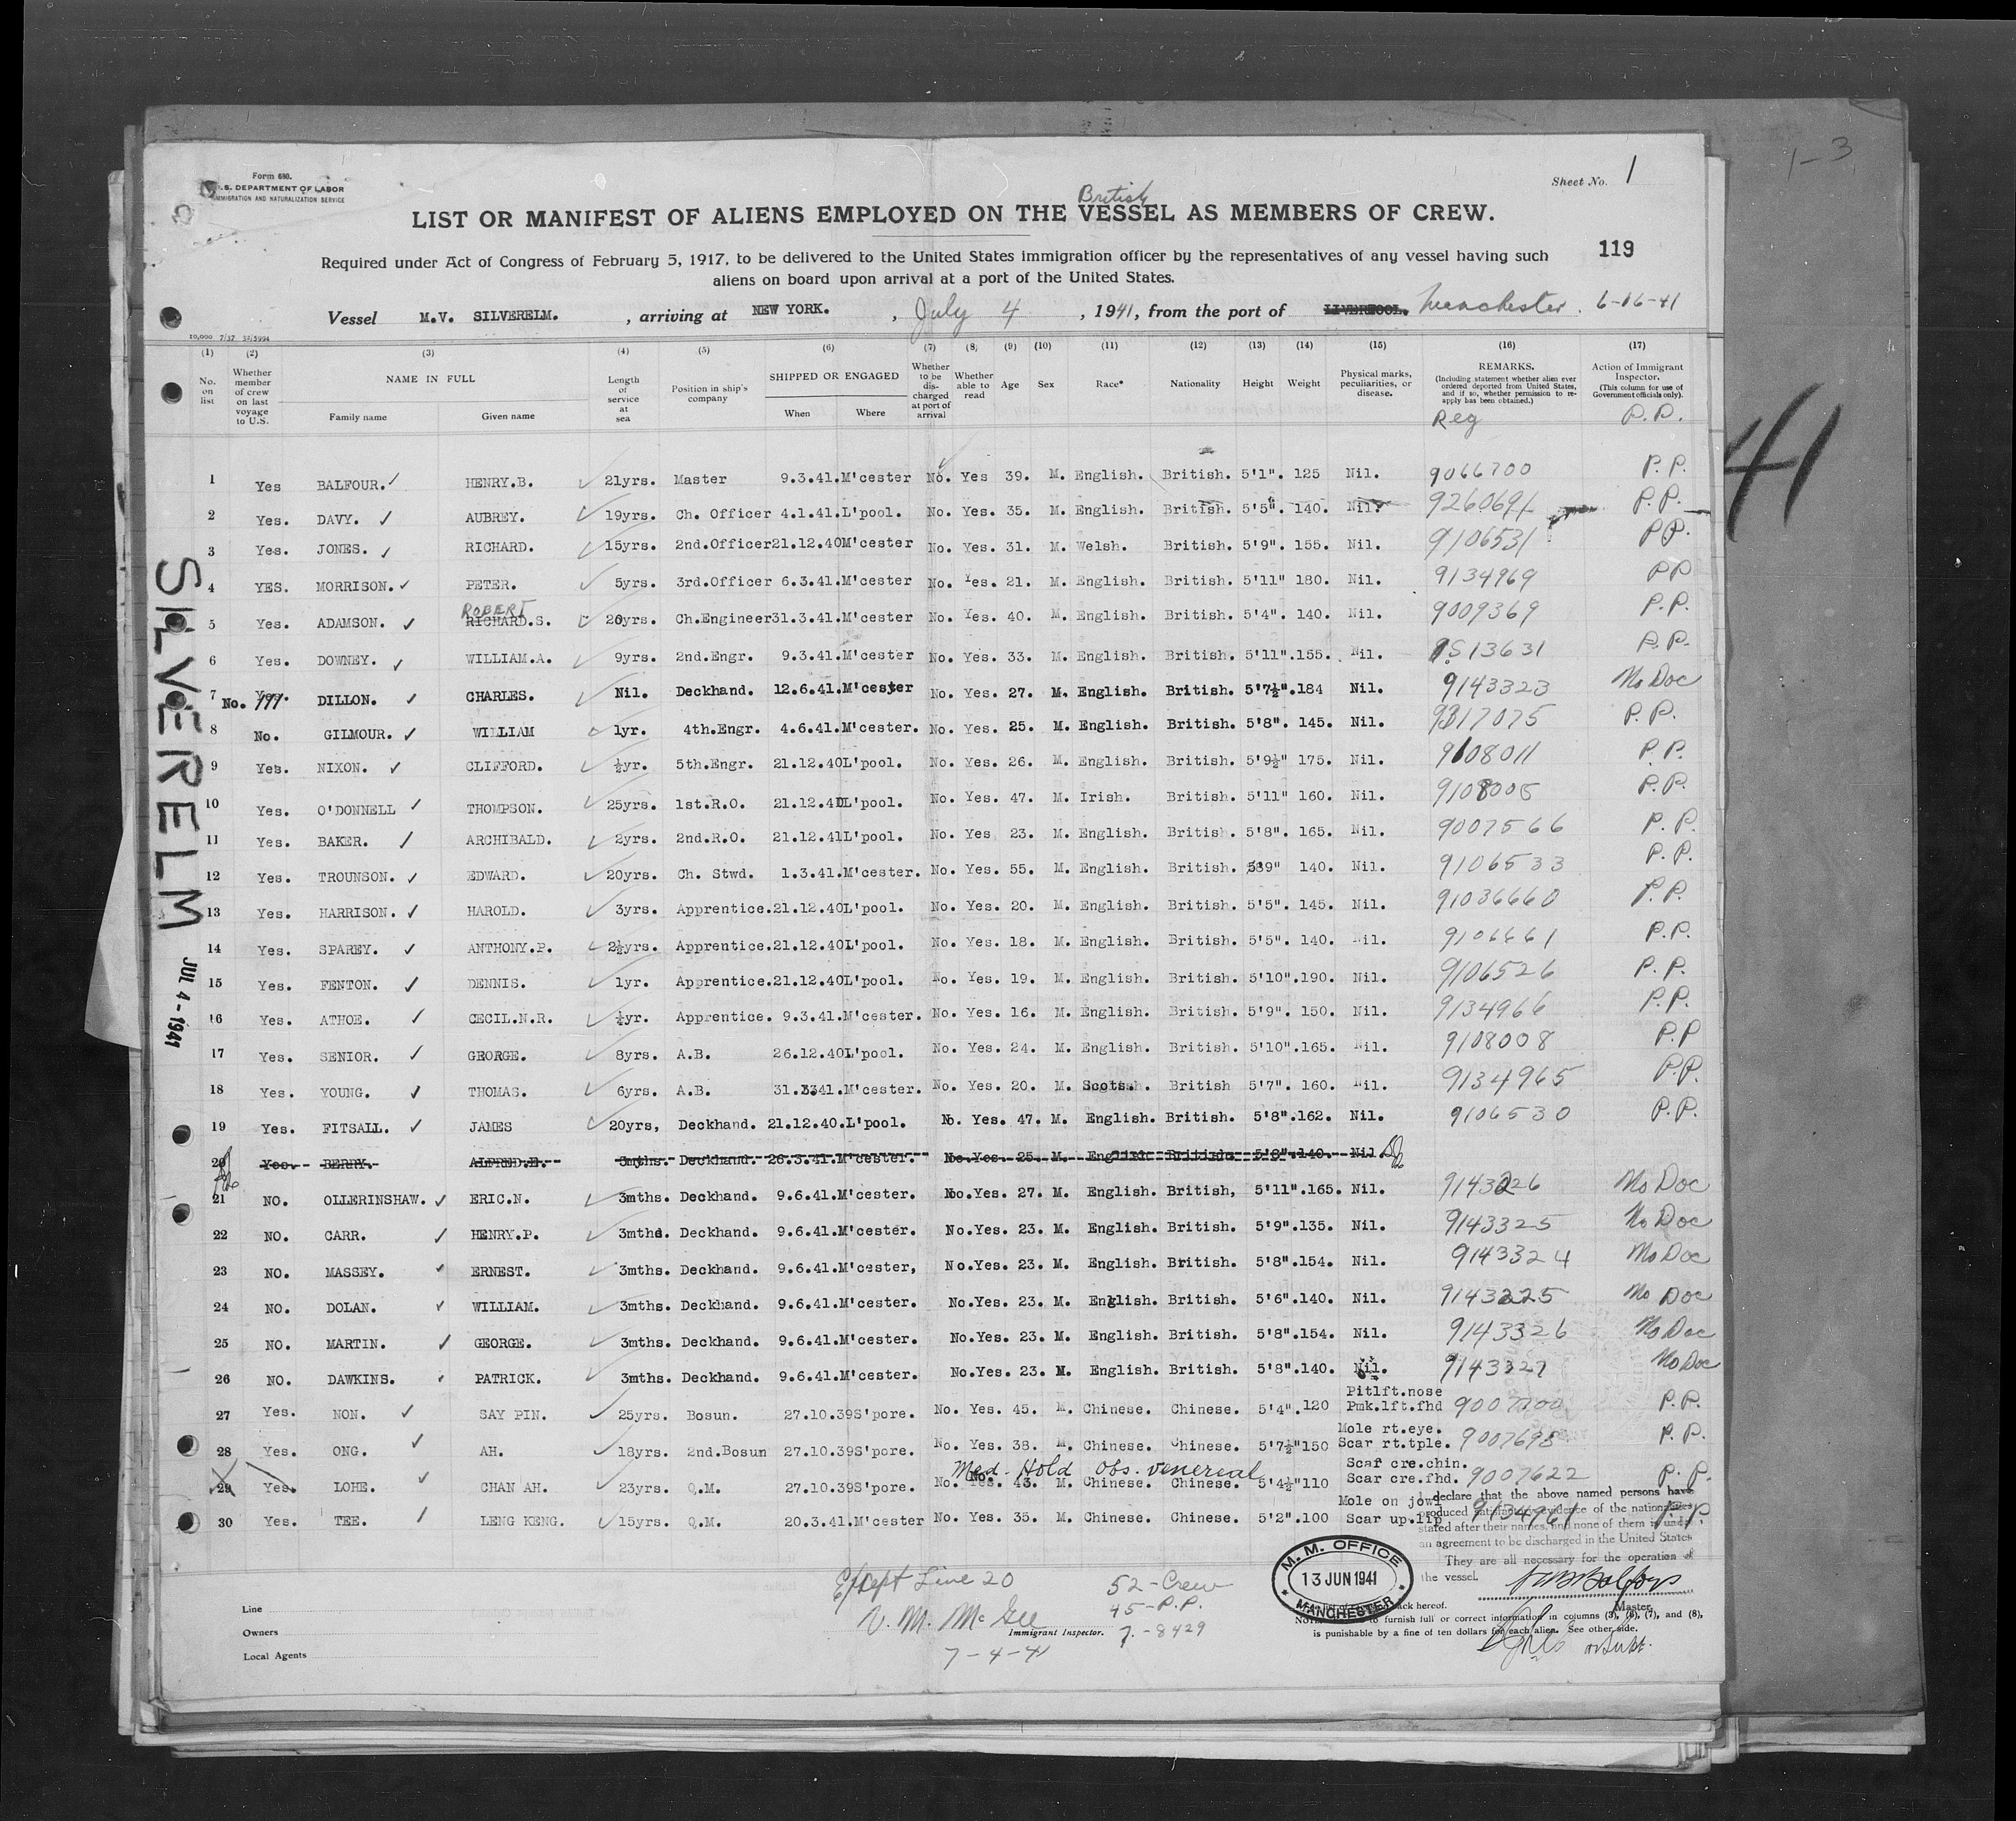 1-3
Form 680.
U.S. DEPARTMENT OF LABOR
IMMIGRATION AND NATURALIZATION SERVICE
Sheet No. 1
British
LIST OR MANIFEST OF ALIENS EMPLOYED ON THE VESSEL AS MEMBERS OF CREW.
119
Required under Act of Congress of February 5, 1917, to be delivered to the United States immigration officer by the representatives of any vessel having such
aliens on board upon arrival at a port of the United States.
Vessel M.V. SILVERELM. , arriving at NEW YORK. , July 4 , 1941, from the port of LIVERPOOL. Manchester. 6-16-41
10,000 7/37 32/5994
(1) (2) (3) (4) (5) (6) (7) (8) (9) (10) (11) (12) (13) (14) (15) (16) (17)
No. on list
Whether member of crew on last voyage to U.S.
NAME IN FULL
Family name
Given name
Length of service at sea
Position in ship's company
SHIPPED OR ENGAGED
When
Where
Whether to be discharged at port of arrival
Whether able to read
Age
Sex
Race*
Nationality
Height
Weight
Physical marks, peculiarities, or disease.
REMARKS.
(Including statement whether alien ever ordered deported from United States, and if so, whether permission to reapply has been obtained.)
Reg
Action of Immigrant Inspector.
(This column for use of Government officials only).
P.P.
41
1 Yes BALFOUR. HENRY.B. 21yrs. Master 9.3.41. M'cester No. Yes 39. M. English. British. 5'1". 125 Nil. 9066700 P.P.
2 Yes. DAVY. AUBREY. 19yrs. Ch. Officer 4.1.41. L'pool. No. Yes. 35. M. English. British. 5'5". 140. Nil. 9260691 P.P.
3 Yes. JONES. RICHARD. 15yrs. 2nd.Officer 21.12.40 M'cester No. Yes. 31. M. Welsh. British. 5'9". 155. Nil. 9106531 P.P.
4 YES. MORRISON. PETER. 5yrs. 3rd.Officer 6.3.41. M'cester No. Yes. 21. M. English. British. 5'11" 180. Nil. 9134969 PP
ROBERT
5 Yes. ADAMSON. RICHARD.S. 20yrs. Ch.Engineer 31.3.41. M'cester No. Yes. 40. M. English. British. 5'4". 140. Nil. 9009369 P.P.
6 Yes. DOWNEY. WILLIAM.A. 9yrs. 2nd.Engr. 9.3.41. M'cester No. Yes. 33. M. English. British. 5'11". 155. Nil. 13631 P.P.
7 No. DILLON. CHARLES. Nil. Deckhand. 12.6.41. M'cester No. Yes. 27. M. English. British. 5'7½". 184 Nil. 9143323 No Doc
8 No. GILMOUR. WILLIAM 1yr. 4th.Engr. 4.6.41. M'cester. No. Yes. 25. M. English. British. 5'8". 145. Nil. 9317075 P.P.
9 Yes. NIXON. CLIFFORD. ½yr. 5th.Engr. 21.12.40 L'pool. No. Yes. 26. M. English. British. 5'9½" 175. Nil. 9108011 P.P.
10 Yes. O'DONNELL THOMPSON. 25yrs. 1st.R.O. 21.12.40 L'pool. No. Yes. 47. M. Irish. British. 5'11" 160. Nil. 9108005 P.P.
11 Yes. BAKER. ARCHIBALD. 2yrs. 2nd.R.O. 21.12.41 L'pool. No. Yes 23. M. English. British. 5'8". 165. Nil. 9007566 P.P.
12 Yes. TROUNSON. EDWARD. 20yrs. Ch. Stwd. 1.3.41. M'cester. No. Yes. 55. M. English. British. 5'9" 140. Nil. 9106533 P.P.
13 Yes. HARRISON. HAROLD. 3yrs. Apprentice. 21.12.40 L'pool. No. Yes. 20. M. English. British. 5'5". 145. Nil. 91036660 P.P.
14 Yes. SPAREY. ANTHONY.P. 2½yrs. Apprentice. 21.12.40 L'pool. No. Yes. 18. M. English. British. 5'5". 140. Nil. 9106661 P.P.
15 Yes. FENTON. DENNIS. 1yr. Apprentice. 21.12.40 L'pool. No. Yes. 19. M. English. British. 5'10". 190. Nil. 9106526 P.P.
16 Yes. ATHOE. CECIL.N.R. ½yr. Apprentice. 9.3.41. M'cester. No. Yes. 16. M. English. British. 5'9". 150. Nil. 9134966 P.P.
17 Yes. SENIOR. GEORGE. 8yrs. A.B. 26.12.40 L'pool. No. Yes. 24. M. English. British. 5'10". 165. Nil. 9108008 P.P
18 Yes. YOUNG. THOMAS. 6yrs. A.B. 31.3.41. M'cester. No. Yes. 20. M. Scotsh. British 5'7". 160. Nil. 9134965 P.P.
19 Yes. FITSALL. JAMES 20yrs, Deckhand. 21.12.40. L'pool. No. Yes. 47. M. English. British. 5'8". 162. Nil. 9106530 P.P.
20 Yes. BERRY. ALFRED.E. 3mths. Deckhand. 26.3.41. M'cester. No. Yes. 25. M. English British. 5'8". 140. Nil.
21 NO. OLLERINSHAW. ERIC.N. 3mths. Deckhand. 9.6.41. M'cester. No. Yes. 27. M. English. British, 5'11". 165. Nil. 9143226 No Doc
22 NO. CARR. HENRY.P. 3mths. Deckhand. 9.6.41. M'cester. No. Yes. 23. M. English. British. 5'9". 135. Nil. 9143325 No Doc
23 NO. MASSEY. ERNEST. 3mths. Deckhand. 9.6.41. M'cester, No. Yes. 23. M. English. British. 5'8". 154. Nil. 9143324 No Doc
24 NO. DOLAN. WILLIAM. 3mths. Deckhand. 9.6.41. M'cester. No. Yes. 23. M. English. British. 5'6". 140. Nil. 9143225 No Doc
25 NO. MARTIN. GEORGE. 3mths. Deckhand. 9.6.41. M'cester. No. Yes. 23. M. English. British. 5'8". 154. Nil. 9143326 No Doc
26 NO. DAWKINS. PATRICK. 3mths. Deckhand. 9.6.41. M'cester. No. Yes. 23. M. English. British. 5'8". 140. Nil. 9143327 No Doc
27 Yes. NON. SAY PIN. 25yrs. Bosun. 27.10.39 S'pore. No. Yes. 45. M. Chinese. Chinese. 5'4". 120 Pitlft.nose Pmk.lft.fhd 9007700 P.P.
28 Yes. ONG. AH. 18yrs. 2nd.Bosun 27.10.39 S'pore. No. Yes. 38. M. Chinese. Chinese. 5'7½" 150 Mole rt.eye. Scar rt.tple. 9007698 P.P.
Med. Hold Obs. venereal
29 Yes. LOHE. CHAN AH. 23yrs. Q.M. 27.10.39 S'pore. No. Yes. 43. M. Chinese. Chinese. 5'4½" 110 Scar cre.chin. Scar cre.fhd. 9007622 P.P.
30 Yes. TEE. LENG KENG. 15yrs. Q.M. 20.3.41. M'cester No. Yes. 35. M. Chinese. Chinese. 5'2". 100 Mole on jowl Scar up.lip 9134961 P.P.
I declare that the above named persons have
produced satisfactory evidence of the nationalities
stated after their names, and none of them is under
an agreement to be discharged in the United States
They are all necessary for the operation of
the vessel.
Master.
M. M. OFFICE
13 JUN 1941
MANCHESTER
Except Line 20
V. M. McGee
Immigrant Inspector.
7-4-41
52-Crew
45-P.P.
7.-8429
Line
Owners
Local Agents
back hereof.
to furnish full or correct information in columns (3), (6), (7), and (8),
is punishable by a fine of ten dollars for each alien. See other side.
SILVERELM
JUL 4-1941